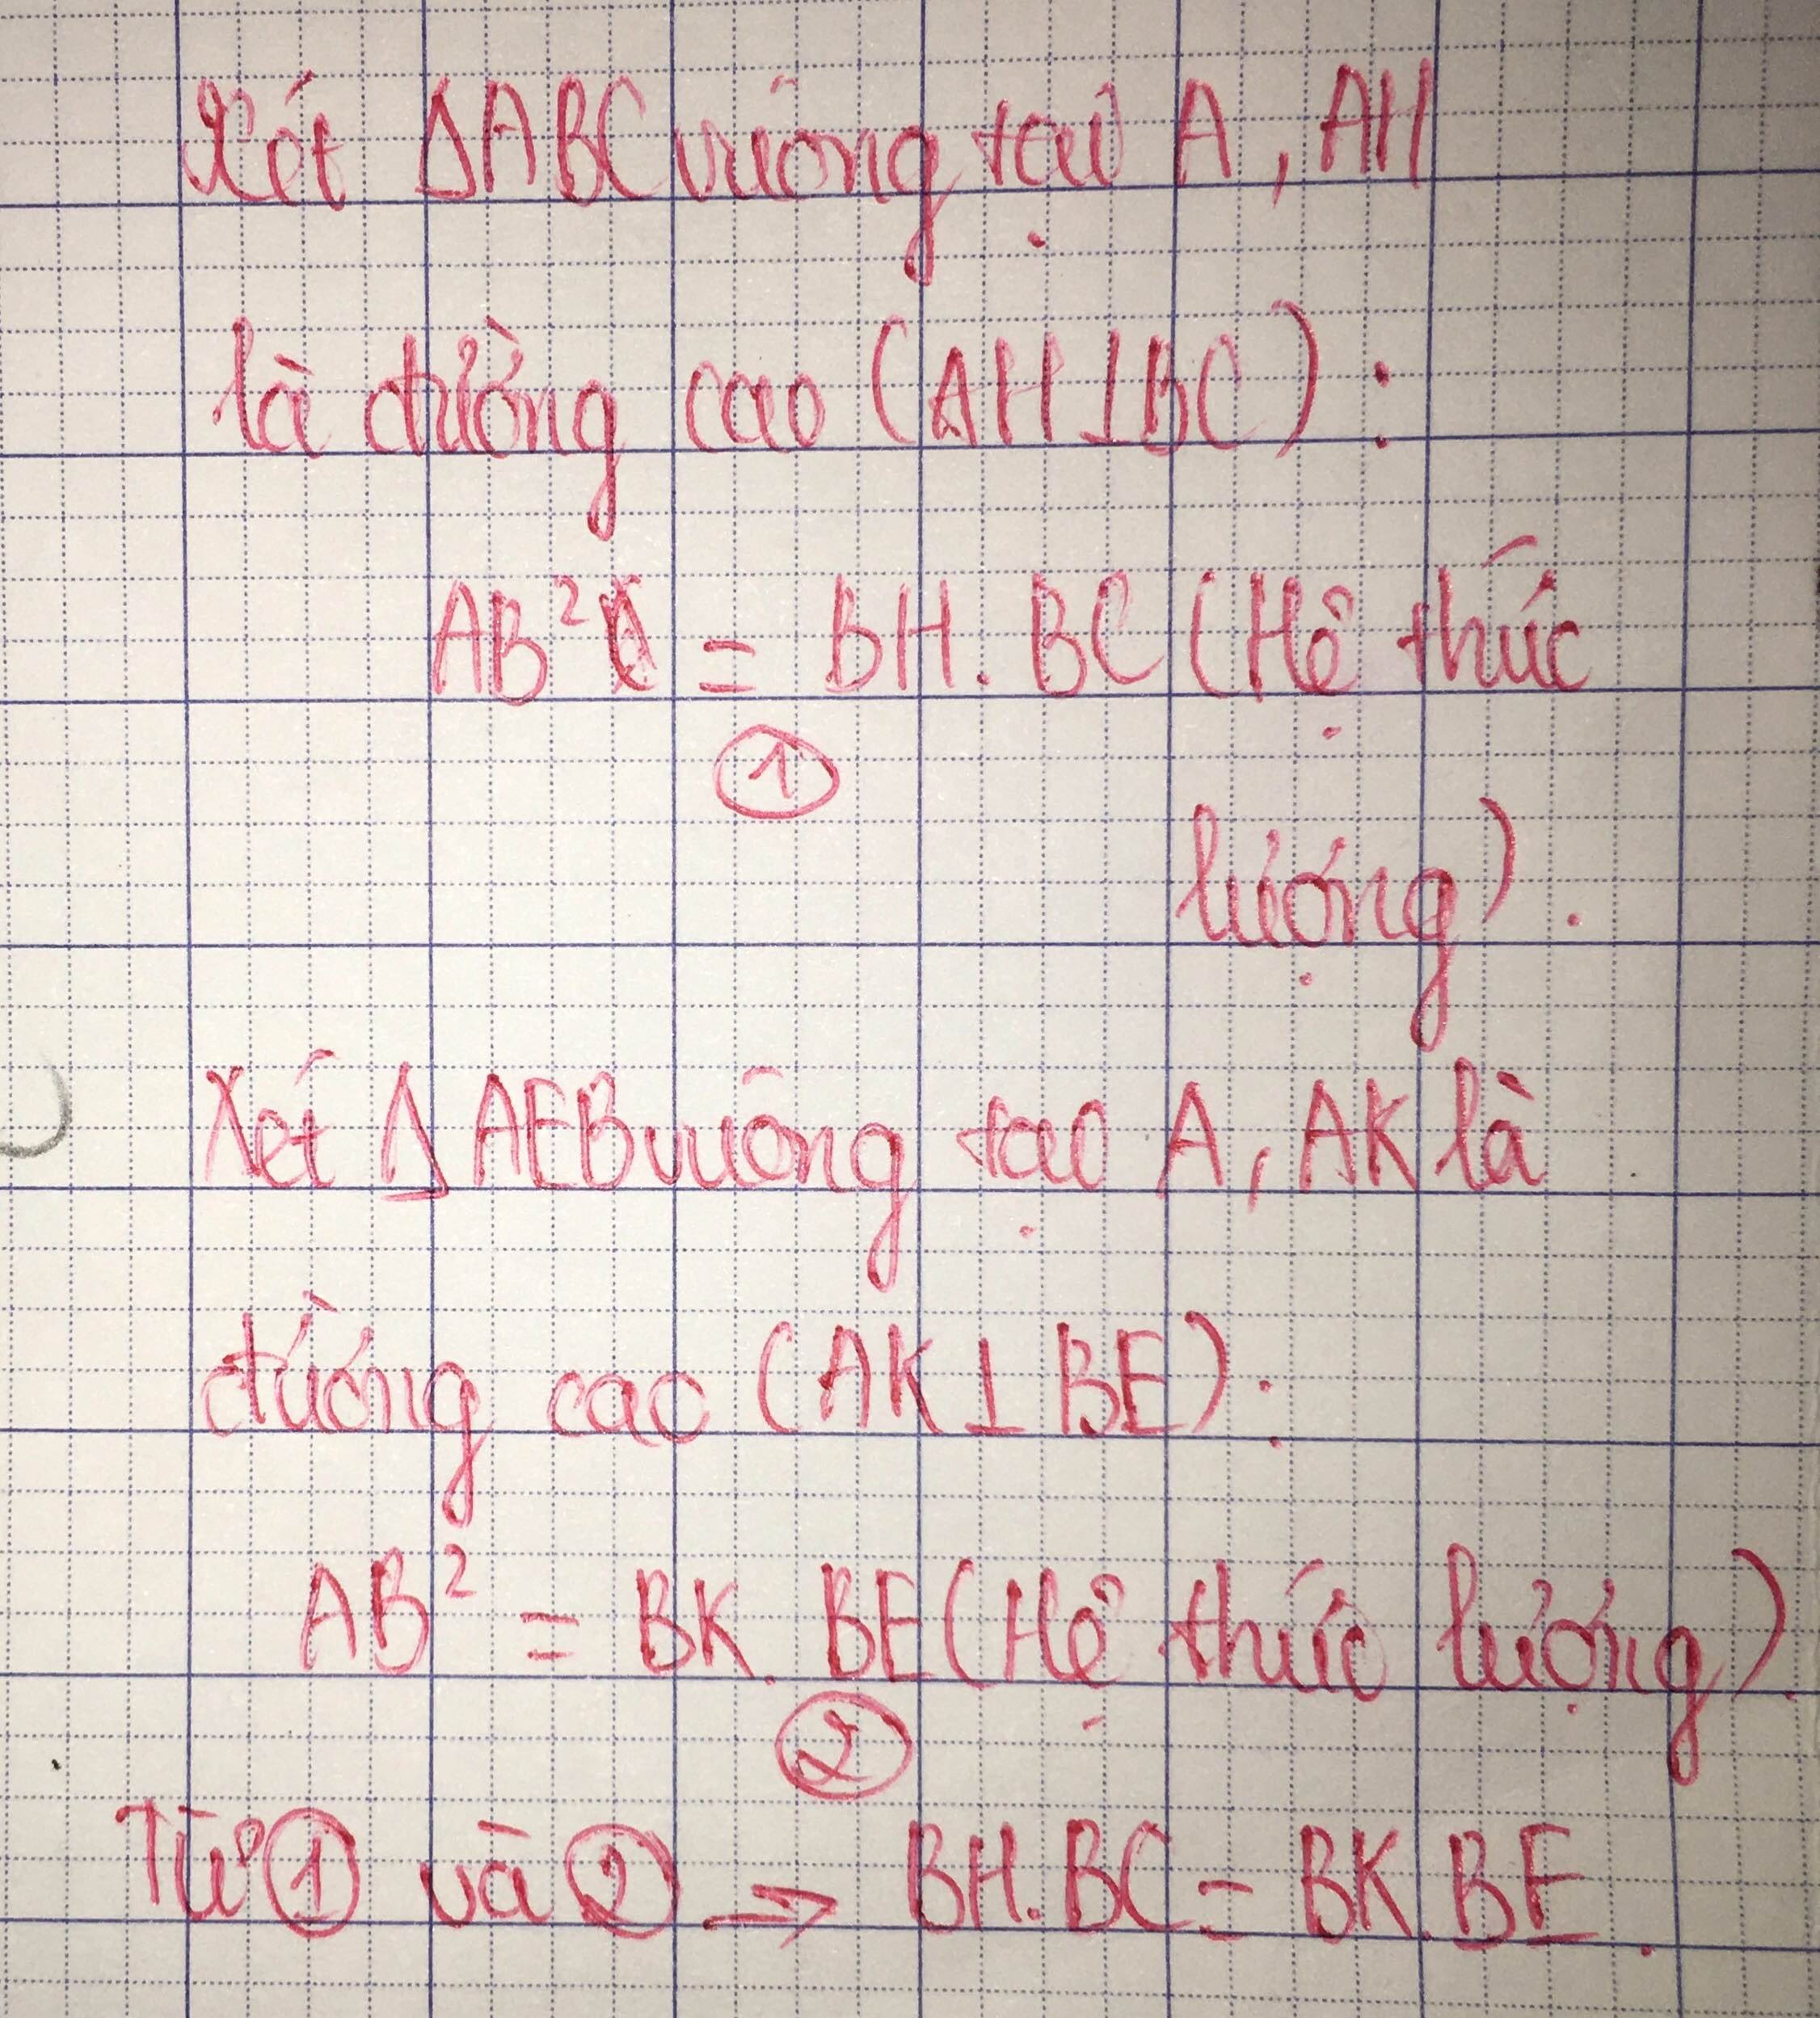 Xét ΔABC vuông tại A, AH
là đường cao (AH⊥BC):
AB² = BH. BC (Hệ thức
①
lượng).
Xét Δ AEB vuông tại A, AK là
đường cao (AK⊥BE):
AB² = BK. BE (Hệ thức lượng).
②
Từ ① và ② → BH.BC = BK.BE.